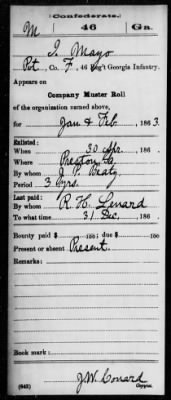 Confederate.
M 46 Ga.
I. Mayo
Pvt, Co. F, 46 Reg't Georgia Infantry.
Appears on
Company Muster Roll
of the organization named above,
for Jan & Feb, 1863.
Enlisted:
When 30 Apr., 186
Where Preston Ga
By whom J. P. Beaty
Period 3 yrs.
Last paid:
By whom R. H. Lenard
To what time 31 Dec, 186
Bounty paid $ 100; due $ 100
Present or absent Present.
Remarks:
Book mark:
(642) J. W. Conard
Copyist.